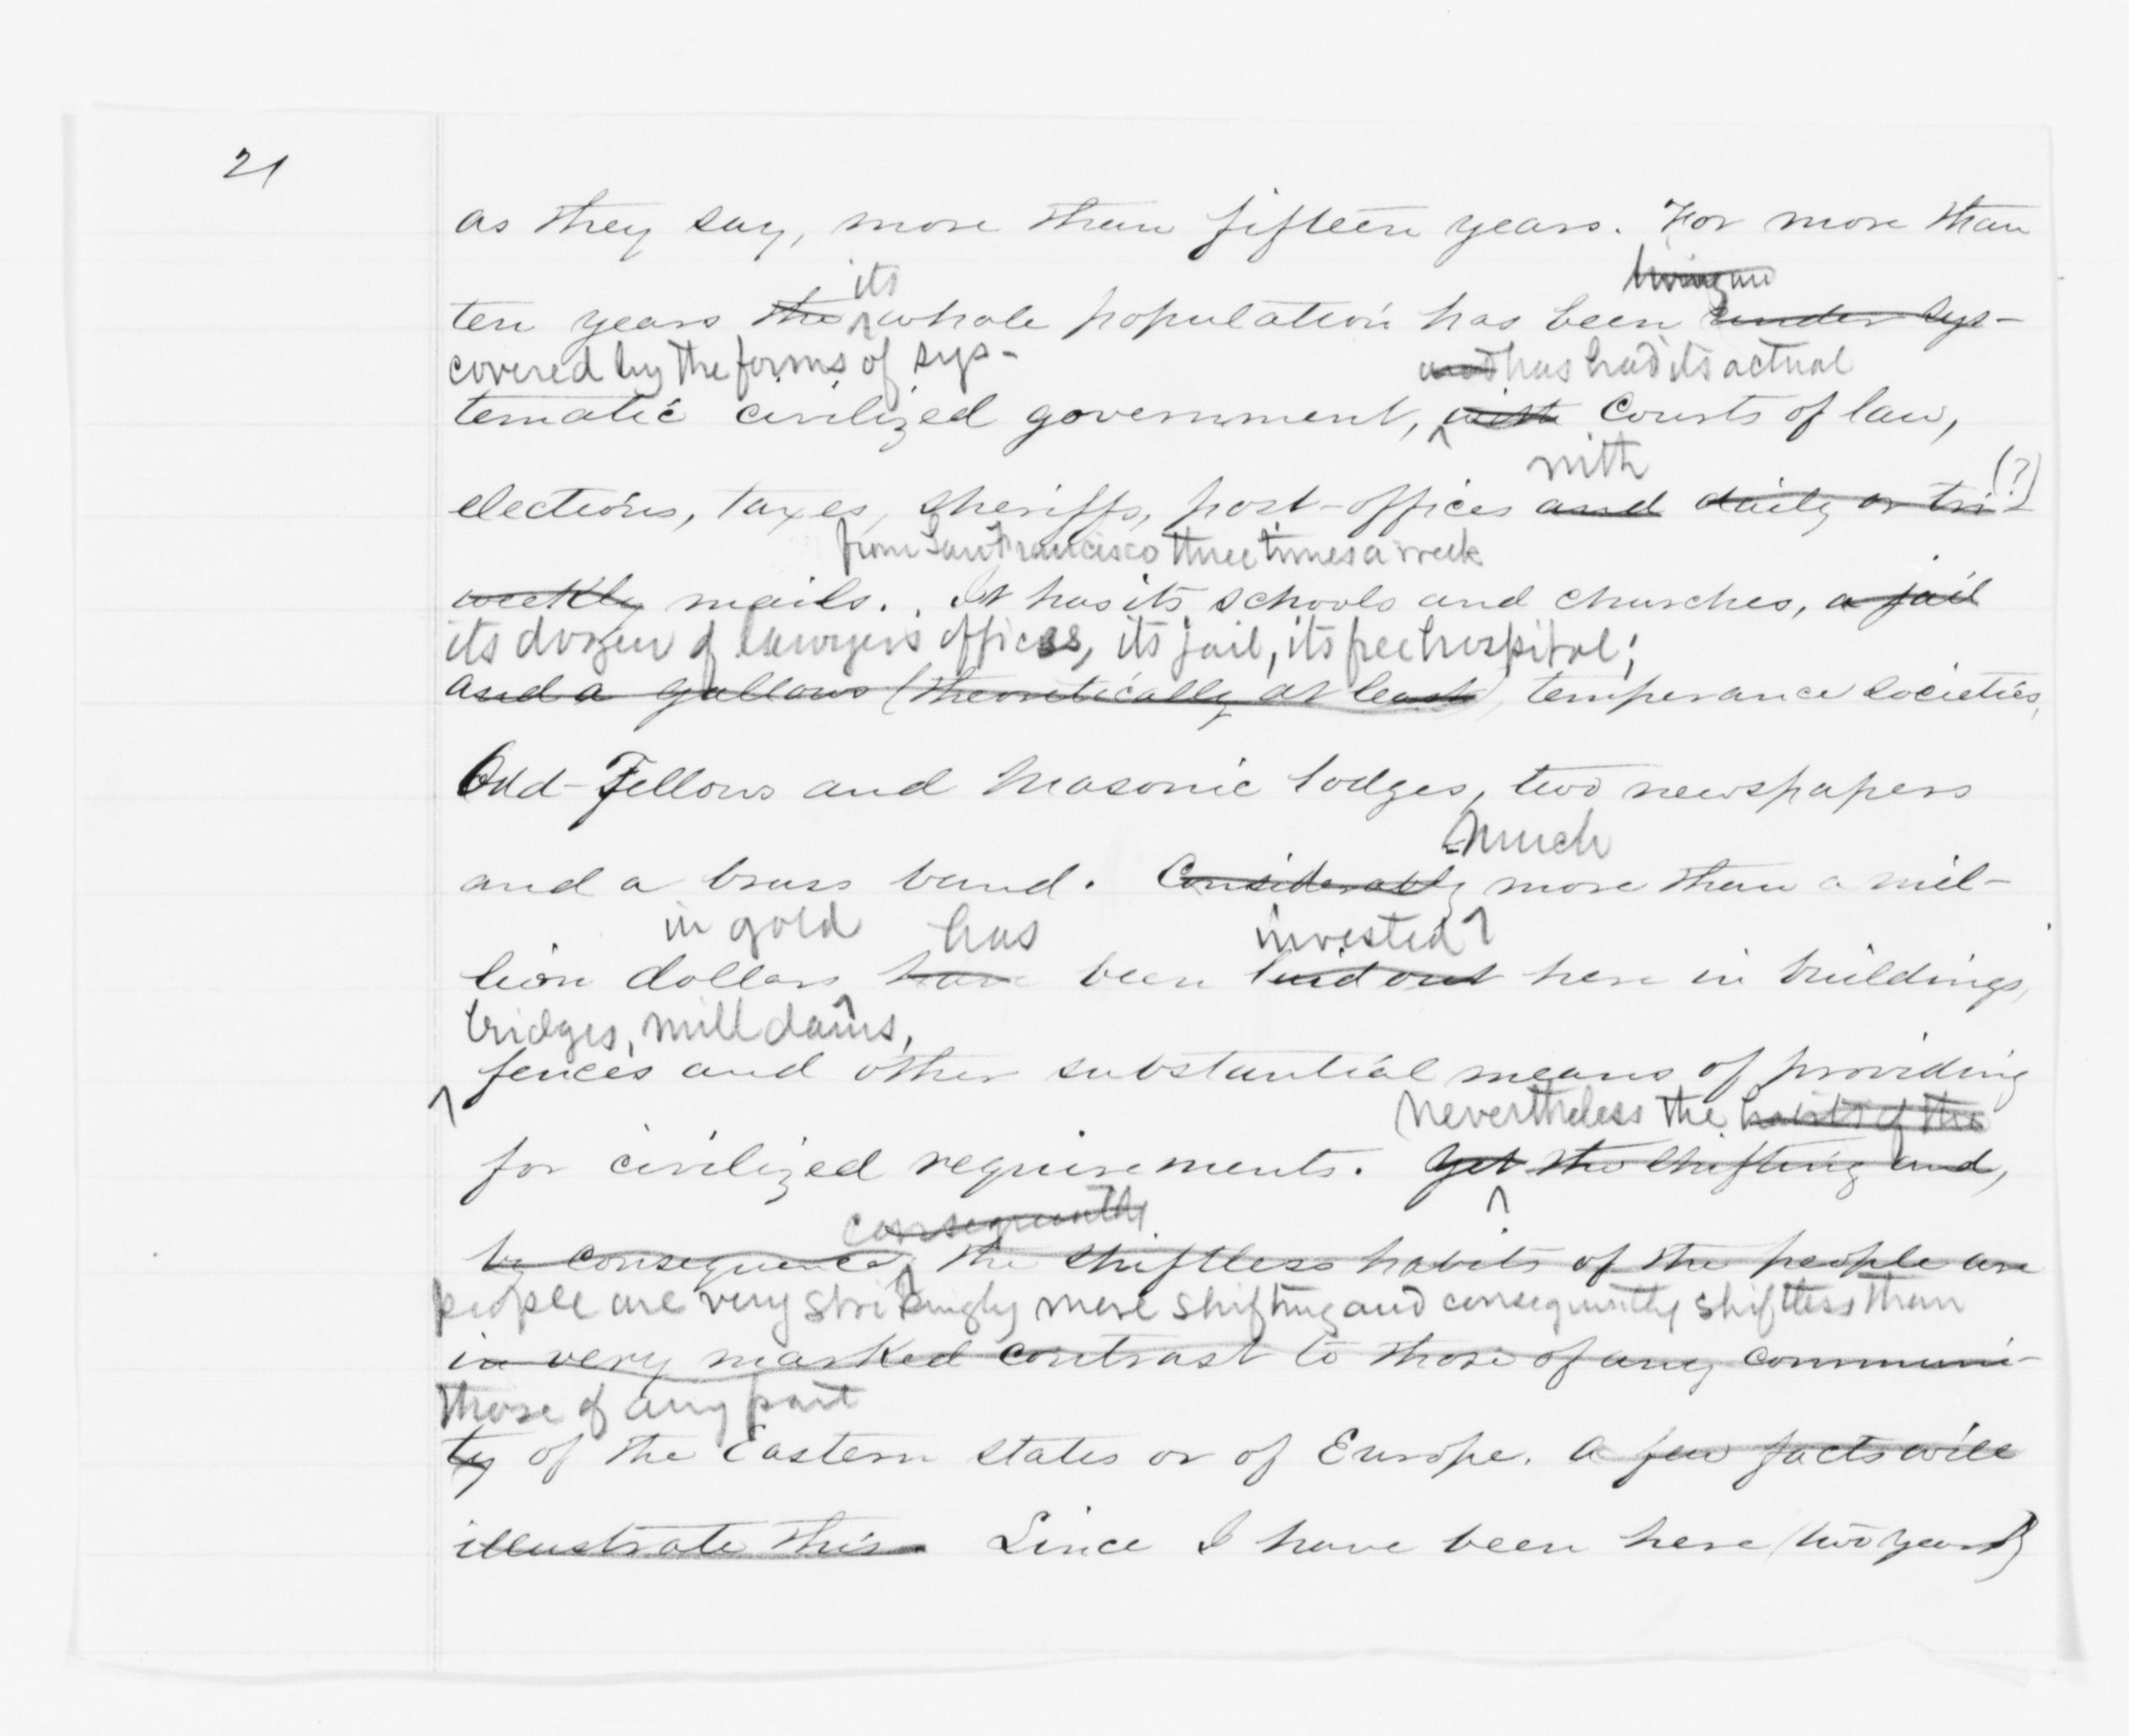 21
as they say, more than fifteen years. For more than
its living un
ten years the whole population has been under sys-
covered by the forms of sys- and has had its actual
tematic civilized government, with Courts of law,
with (?)
elections, taxes, sheriffs, post-offices and daily or tri-
from San Francisco three times a week
weekly mails. It has its schools and churches, a jail
its dozen of lawyers offices, its jail, its free hospital;
and a gallows (theoretically at least), temperance societies,
Odd-Fellows and Masonic lodges, two newspapers
much
and a brass band. Considerably more than a mil-
in gold has invested
lion dollars have been laid out here in buildings,
bridges, mill dams,
fences and other substantial means of providing
Nevertheless the habits of the
for civilized requirements. Yet the shifting and,
consequently
by consequence, the shiftless habits of the people are
people are very strikingly more shifting and consequently shiftless than
in very marked contrast to those of any communi-
those of any part
ty of the Eastern States or of Europe. A few facts will
illustrate this. Since I have been here (two years)